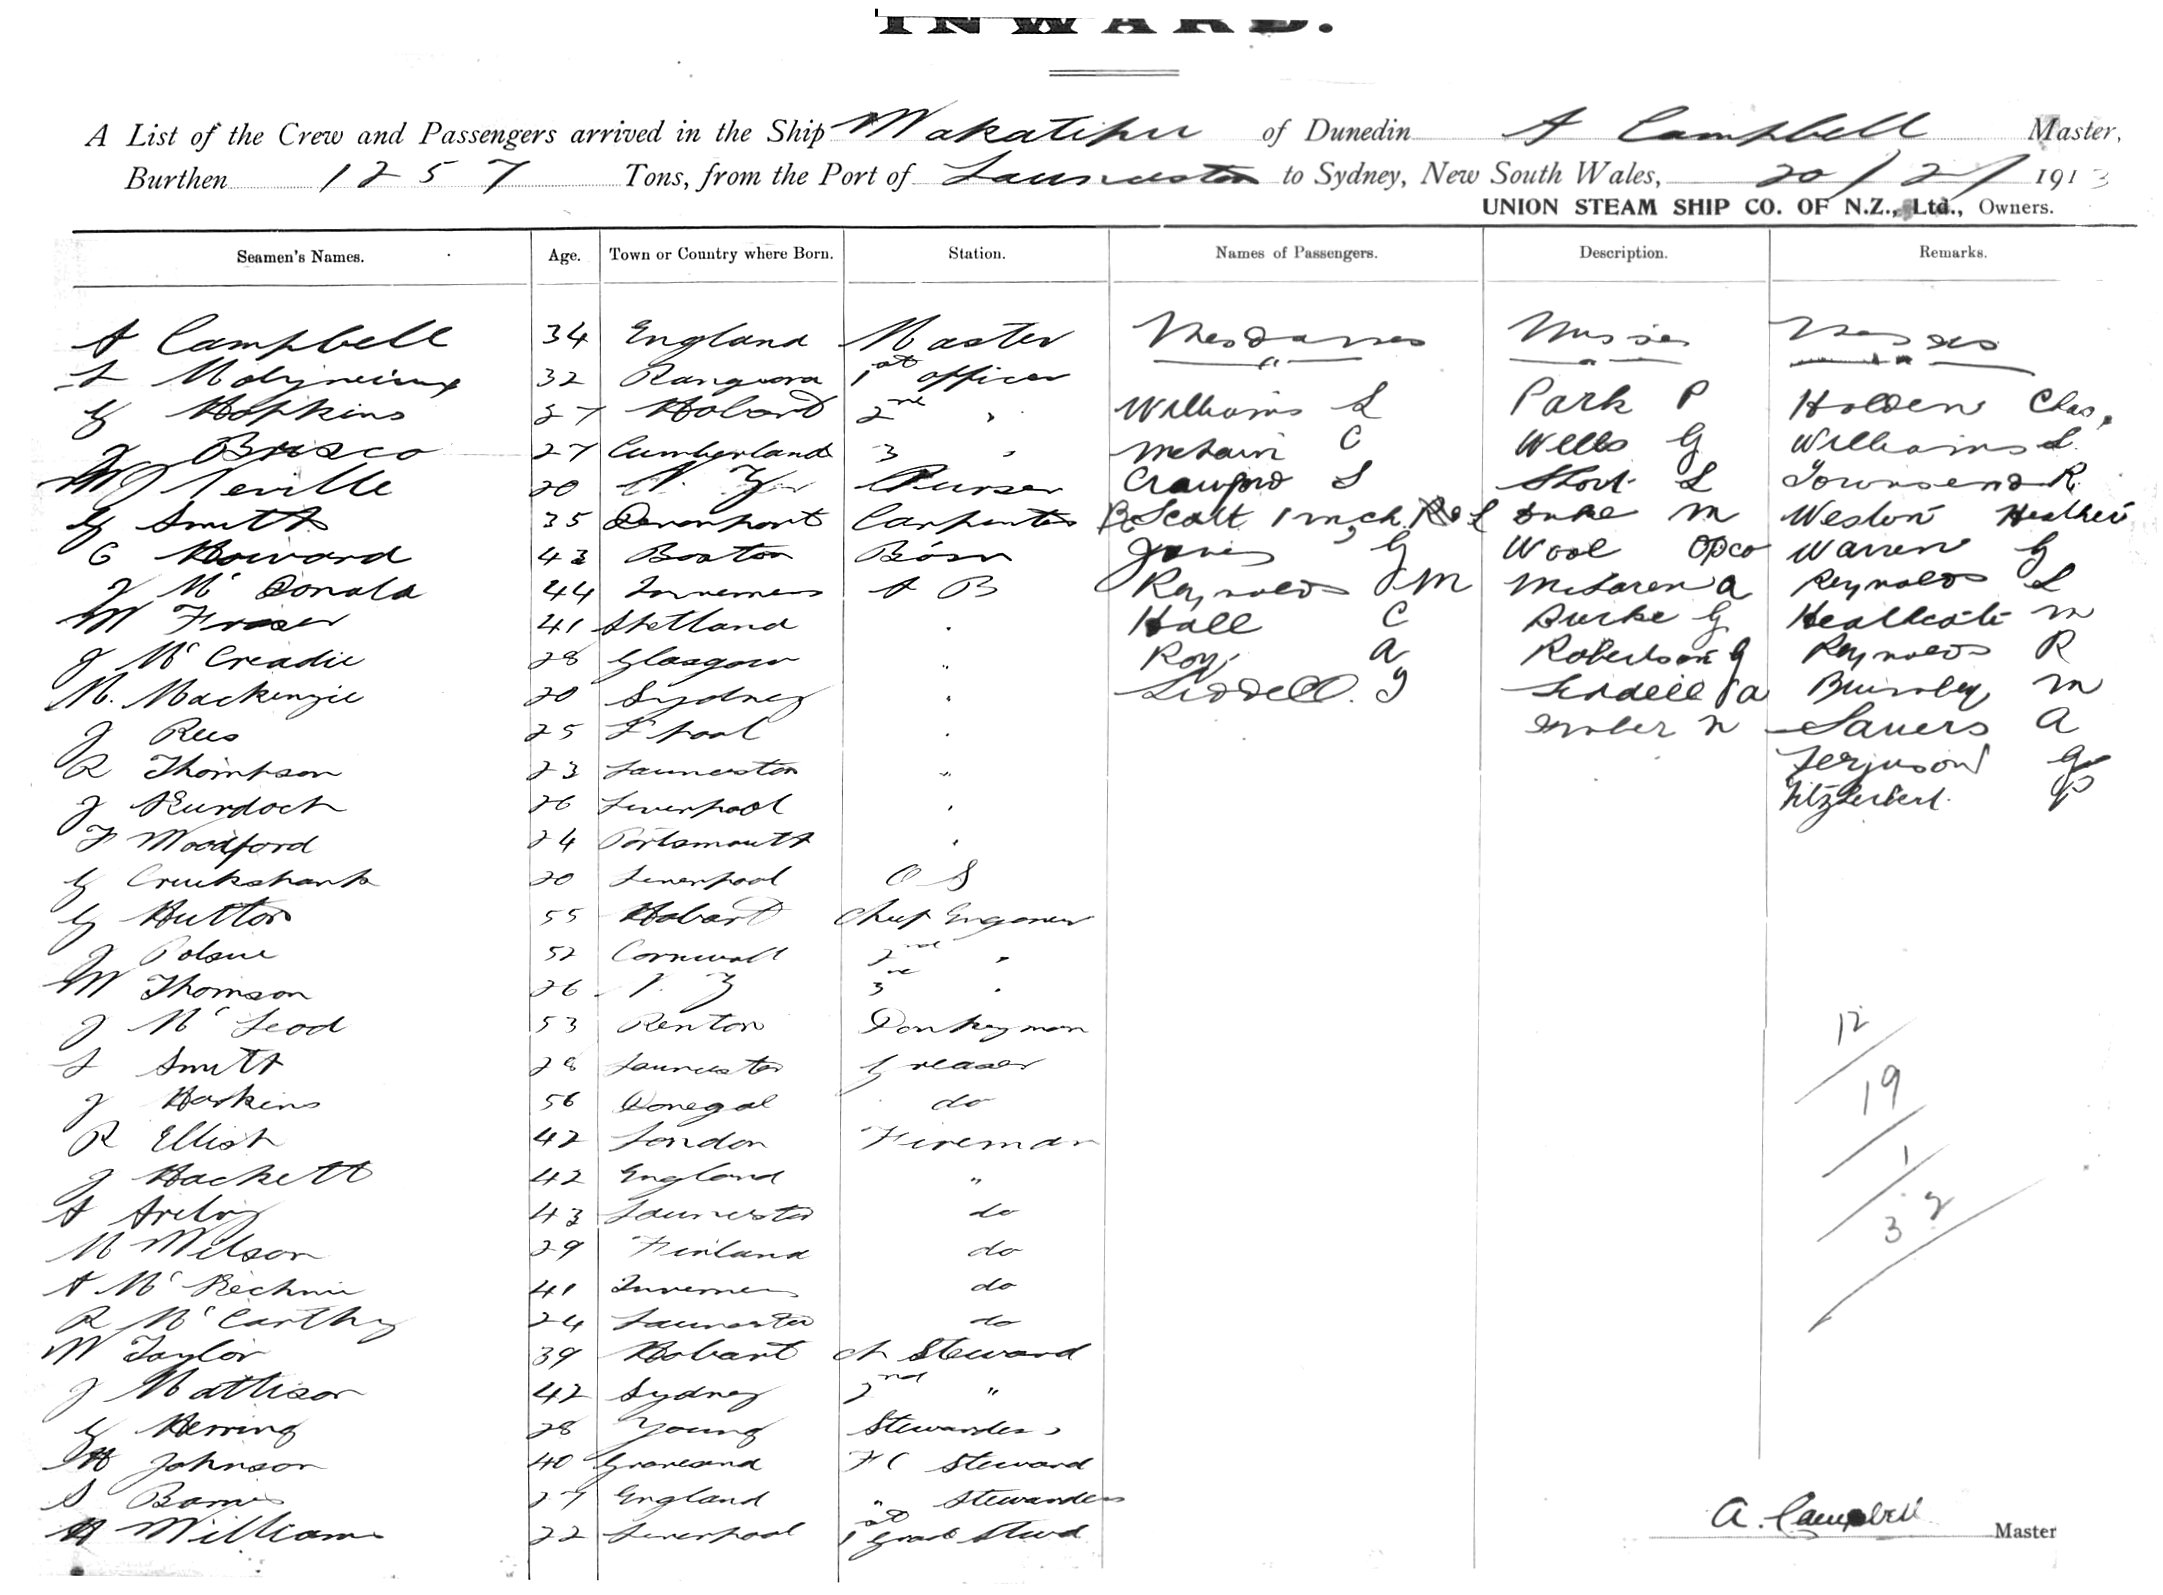 INWARD.
A List of the Crew and Passengers arrived in the Ship Wakatipu of Dunedin A Campbell Master,
Burthen 1257 Tons, from the Port of Launceston to Sydney, New South Wales, 20/2/1913
UNION STEAM SHIP CO. OF N.Z., Ltd., Owners.
Seamen's Names. Age. Town or Country where Born. Station. Names of Passengers. Description. Remarks.
A Campbell 34 England Master Mesdames Misses Messrs
L Molyneiux 32 Rangiora 1st officer " " "
G Hopkins 27 Hobart 2nd " Williams L Park P Holden Chas.
J Brisco 27 Cumberland 3 " McBain C Wells G Williams L.
W Neville 20 N. Z Purser Crawford S Short L Townsend R.
G Smith 35 Devonport Carpenter Scott 1 inch L Duke M Weston
C Howard 43 Boston Bosn Jones G Wool Warren G
J McDonald 44 Inverness A B Reynolds M McLaren A Reynolds L
W Fraser 41 Shetland " Hall C Burke G Heathcote M
J McCreadie 28 Glasgow " Roy A Robertson G Reynolds R
M. Mackenzie 20 Sydney " Liddell. J Liddell A Burnley M
J Rees 25 L'pool " N Sauers A
R Thompson 23 Launceston " Ferguson G
J Murdoch 26 Liverpool " Fitzherbert. P
F Woodford 24 Portsmouth "
G Cruikshank 20 Liverpool O S
G Hutton 55 Hobart Chief Engineer
J Polsue 52 Cornwall 2nd "
W Thomson 26 N. Z 3rd "
J McLeod 53 Renton Donkeyman
L Smith 28 Launceston Greaser
J Haskins 56 Donegal do
R Elliot 42 London Fireman
J Hackett 42 England "
A 43 Launceston do
M Wilson 29 Finland do
A McKechnie 41 Inverness do
R McCarthy 24 Launceston do
W Taylor 39 Hobart Ch Steward
J Mattison 42 Sydney 2nd "
G Herring 28 Young Stewardess
H Johnson 40 Gravesend F C Steward
S Barnes 27 England " Stewardess
H Williams 22 Liverpool 1st Grade Stwd
12
19
1
32
A. Campbell Master